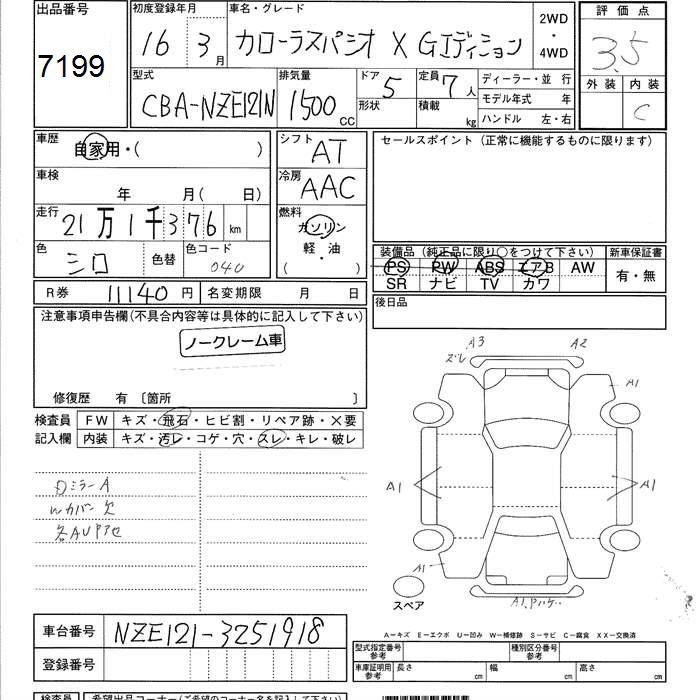 出品番号
7199
初度登録年月
16 3月
車名・グレード
カローラスパシオ X Gエディション
2WD
・
4WD
評価点
3.5
外装 内装
C
型式
CBA-NZE121N
排気量
1500 CC
ドア 5
形状
定員 7人
積載 kg
ディーラー・並 行
モデル年式 年
ハンドル 左・右
車歴
自家用・( )
車検
年 月( 日)
走行
21万1千376 km
色
シロ
色替
色コード
040
シフト
AT
冷房
AAC
燃料
ガソリン
軽・油
( )
セールスポイント (正常に機能するものに限ります)
装備品 (純正品に限り○をつけて下さい)
PS PW ABS エアB AW
SR ナビ TV カワ
新車保証書
有・無
R券 11140円
名変期限 月 日
後日品
注意事項申告欄(不具合内容等は具体的に記入して下さい)
ノークレーム車
修復歴 有 〔箇所 〕
検査員
記入欄
FW キズ・飛石・ヒビ割・リペア跡・X要
内装 キズ・汚レ・コゲ・穴・スレ・キレ・破レ
Wカバー欠
A3
ズレ
A2
A1
A1
A1
A1
A1
スペア
A−キズ E−エクボ U−凹み W−補修跡 S−サビ C−腐食 XX−交換済
車台番号 NZE121-3251918
登録番号
型式指定番号
参考
種別区分番号
参考
車庫証明用
参考
長さ cm 幅 cm 高さ cm
検査員
希望出品コーナー(ご希望のコーナー名を記入下さい)